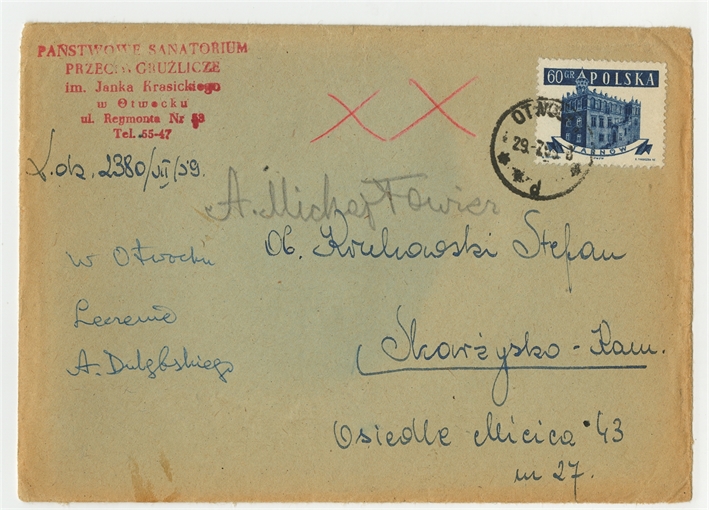 PAŃSTWOWE SANATORIUM
PRZECIWGRUŹLICZE
im. Janka Krasickiego
w Otwocku
ul. Reymonta Nr 53
Tel. 55-47
L. dz. 2380/VII/59.
60 GR POLSKA
TARNÓW
OTWOCK
29.7.59
A. Michaj
Ob. Stefan
Skarżysko-Kam.
Osiedle Milica 43
m 27.
w Otwocku
Leczenie
X X